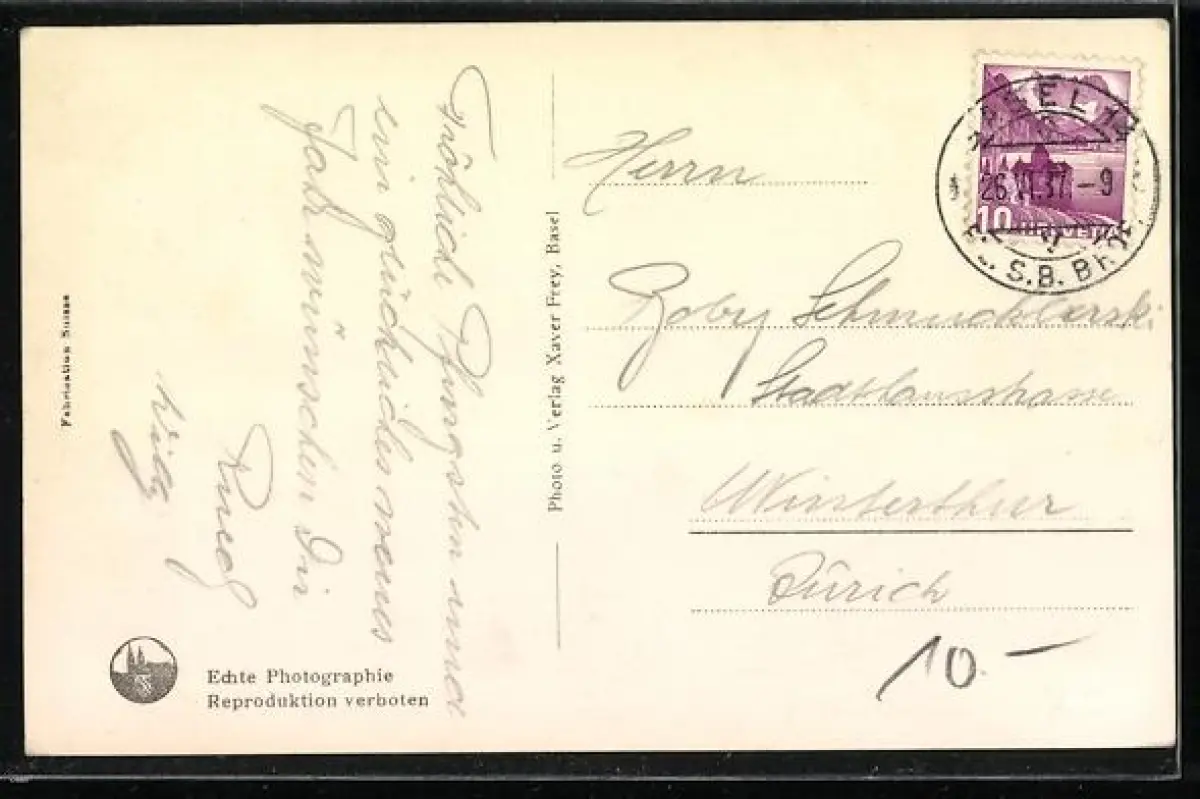 Fröhliche Pfingsten und
ein glückliches neues
Jahr wünschen Dir
Ruedi
Willy
Fabrication Suisse
Echte Photographie
Reproduktion verboten
Photo u. Verlag Xaver Frey, Basel
BASEL
26.VI.37.-9
S.B.
10
HELVETIA
Herrn
Schmucklerski
Winterthur
Zürich
10.-